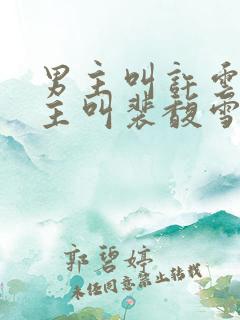 男主叫許雲
主叫裴馥雪
郭碧婷
未經同意禁止轉載